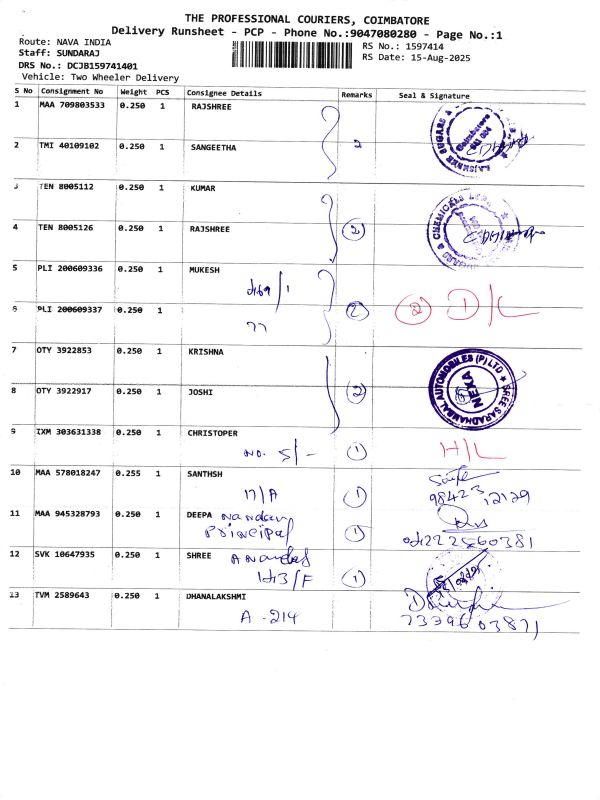 THE PROFESSIONAL COURIERS, COIMBATORE
Delivery Runsheet - PCP - Phone No.:9047080280 - Page No.:1
Route: NAVA INDIA
RS No.: 1597414
Staff: SUNDARAJ
RS Date: 15-Aug-2025
DRS No.: DCJB159741401
Vehicle: Two Wheeler Delivery
S No Consignment No Weight PCS Consignee Details Remarks Seal & Signature
1 MAA 709803533 0.250 1 RAJSHREE
2 TMI 40109102 0.250 1 SANGEETHA 2
3 TEN 8005112 0.250 1 KUMAR
4 TEN 8005126 0.250 1 RAJSHREE 2
5 PLI 200609336 0.250 1 MUKESH
6 PLI 200609337 0.250 1 2 2 D/L
77
7 OTY 3922853 0.250 1 KRISHNA
8 OTY 3922917 0.250 1 JOSHI 2
SREE SARADHAMBAL AUTOMOBILES (P) LTD
NEXA
9 IXM 303631338 0.250 1 CHRISTOPER
NO. 5/- 1 H/L
10 MAA 578018247 0.255 1 SANTHSH
17/A 1 98423 12129
11 MAA 945328793 0.250 1 DEEPA
Principal 1 04222560381
12 SVK 10647935 0.250 1 SHREE
1 
13 TVM 2589643 0.250 1 DHANALAKSHMI
A-214 7339603871